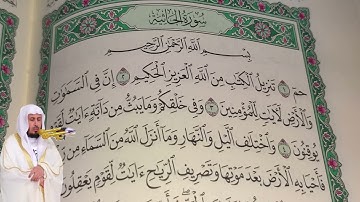 سُورَةُ الجَاثِيَةِ
بِسْمِ ٱللَّهِ ٱلرَّحْمَٰنِ ٱلرَّحِيمِ
حمٓ ١ تَنزِيلُ ٱلْكِتَٰبِ مِنَ ٱللَّهِ ٱلْعَزِيزِ ٱلْحَكِيمِ ٢ إِنَّ فِى ٱلسَّمَٰوَٰتِ
وَٱلْأَرْضِ لَأٓيَٰتٍ لِّلْمُؤْمِنِينَ ٣ وَفِى خَلْقِكُمْ وَمَا يَبُثُّ مِن دَآبَّةٍ ءَايَٰتٌ لِّقَوْمٍ
يُوقِنُونَ ٤ وَٱخْتِلَٰفِ ٱلَّيْلِ وَٱلنَّهَارِ وَمَآ أَنزَلَ ٱللَّهُ مِنَ ٱلسَّمَآءِ مِن
فَأَحْيَا بِهِ ٱلْأَرْضَ بَعْدَ مَوْتِهَا وَتَصْرِيفِ ٱلرِّيَٰحِ ءَايَٰتٌ لِّقَوْمٍ يَعْقِلُونَ